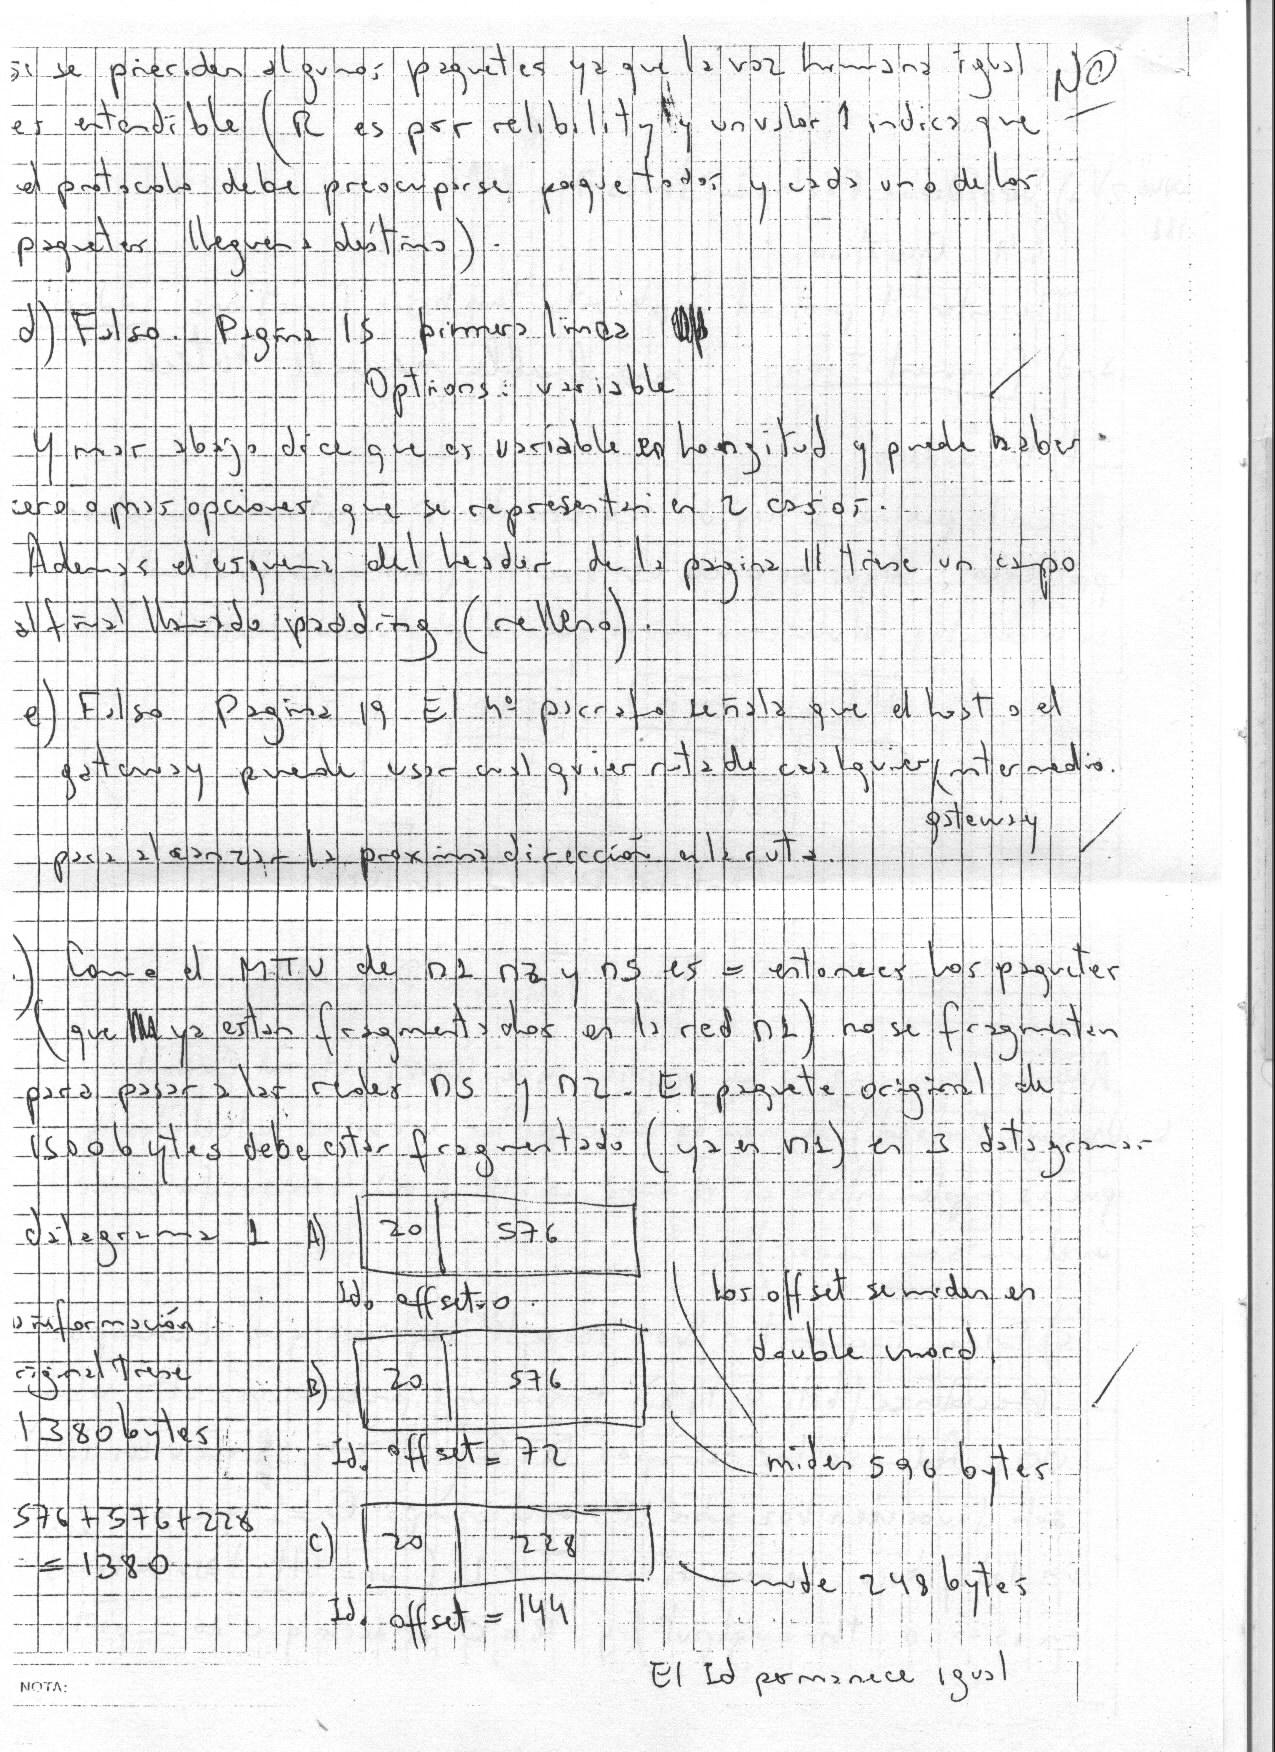 si se pierden algunos paquetes ya que la voz humana igual NO
es entendible (R es por relibility y un valor 1 indica que
el protocolo debe preocuparse paque todos y cada uno de los
paquetes lleguen a destino).
d) Falso. Pagina 15 primera linea
Options: variable
Y mas abajo dice que es variable en longitud y puede haber
cero o mas opciones que se representan en 2 casos.
Ademas el esquema del header de la pagina 11 trae un campo
al final llamado padding (relleno).
e) Falso Pagina 19 El 4º parrafo señala que el host o el
gateway puede usar cualquier ruta de cualquier intermedio.
gateway
para alcanzar la proxima dirección en la ruta.
.) Como el MTU de n1 n2 y n5 es = entonces los paquetes
(que ya estan fragmentados en la red n1) no se fragmentan
para pasar a las redes n5 y n2. El paquete original de
1500 bytes debe estar fragmentado (ya en n1) en 3 datagramas
datagrama 1 A) 20 576
Id. offset=0.
Los offset se miden en
double word.
información
riginal trae
1380 bytes
B) 20 576
Id. offset = 72
miden 596 bytes
576+576+228
= 1380
C) 20 228
mide 248 bytes
Id. offset = 144
El Id permanece igual
NOTA: